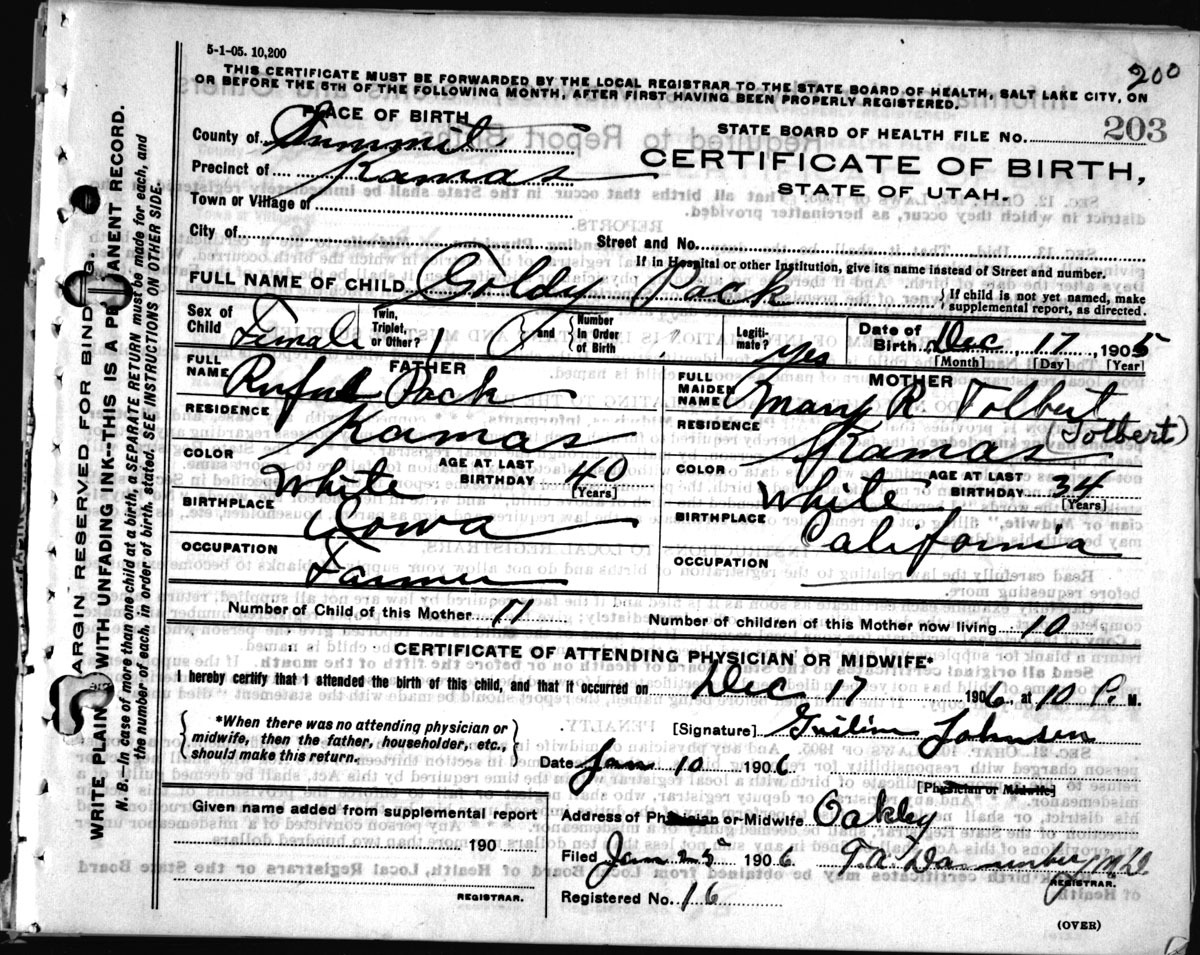 5-1-05. 10,200
200
THIS CERTIFICATE MUST BE FORWARDED BY THE LOCAL REGISTRAR TO THE STATE BOARD OF HEALTH, SALT LAKE CITY, ON
OR BEFORE THE 5TH OF THE FOLLOWING MONTH, AFTER FIRST HAVING BEEN PROPERLY REGISTERED.
PLACE OF BIRTH
STATE BOARD OF HEALTH FILE No. 203
County of Summit
CERTIFICATE OF BIRTH,
Precinct of Kamas
STATE OF UTAH.
Town or Village of
City of Street and No.
If in Hospital or other Institution, give its name instead of Street and number.
FULL NAME OF CHILD Goldy Pack { If child is not yet named, make supplemental report, as directed.
Sex of Child Female Twin, Triplet, or Other? 1 } and { Number In Order of Birth Legitimate? Yes Date of Birth, Dec 17 1905
[Month] [Day] [Year]
FATHER
FULL NAME Rufus Pack
RESIDENCE Kamas
COLOR White AGE AT LAST BIRTHDAY 40 [Years]
BIRTHPLACE Iowa
OCCUPATION Farmer
MOTHER
FULL MAIDEN NAME Mary R Tolbert
(Tolbert)
RESIDENCE Kamas
COLOR White AGE AT LAST BIRTHDAY 34 [Years]
BIRTHPLACE California
OCCUPATION
Number of Child of this Mother 11 Number of children of this Mother now living 10
CERTIFICATE OF ATTENDING PHYSICIAN OR MIDWIFE*
I hereby certify that I attended the birth of this child, and that it occurred on Dec 17 1906, at 10 P. M.
{ *When there was no attending physician or midwife, then the father, householder, etc., should make this return. }
[Signature] Johnsen
Date Jan 10 1906
[Physician or Midwife]
Given name added from supplemental report
190
REGISTRAR.
Address of Physician or Midwife Oakley
Filed Jan 25 1906
REGISTRAR.
Registered No. 16
(OVER)
MARGIN RESERVED FOR BINDING.
WRITE PLAINLY WITH UNFADING INK--THIS IS A PERMANENT RECORD.
N. B.--In case of more than one child at a birth, a SEPARATE RETURN must be made for each, and
the number of each, in order of birth, stated. SEE INSTRUCTIONS ON OTHER SIDE.